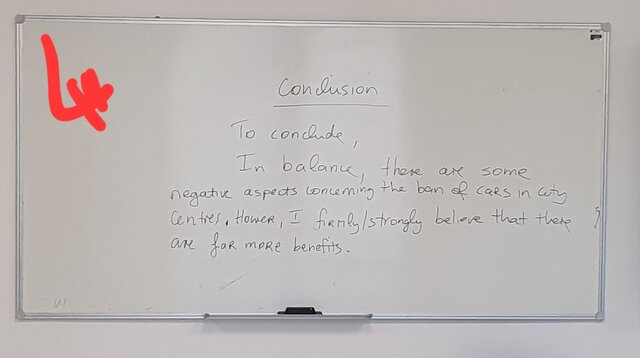 4*
Conclusion
To conclude,
In balance, there are some
negative aspects concerning the ban of cars in city
centres. Hower, I firmly/strongly believe that there
are far more benefits.